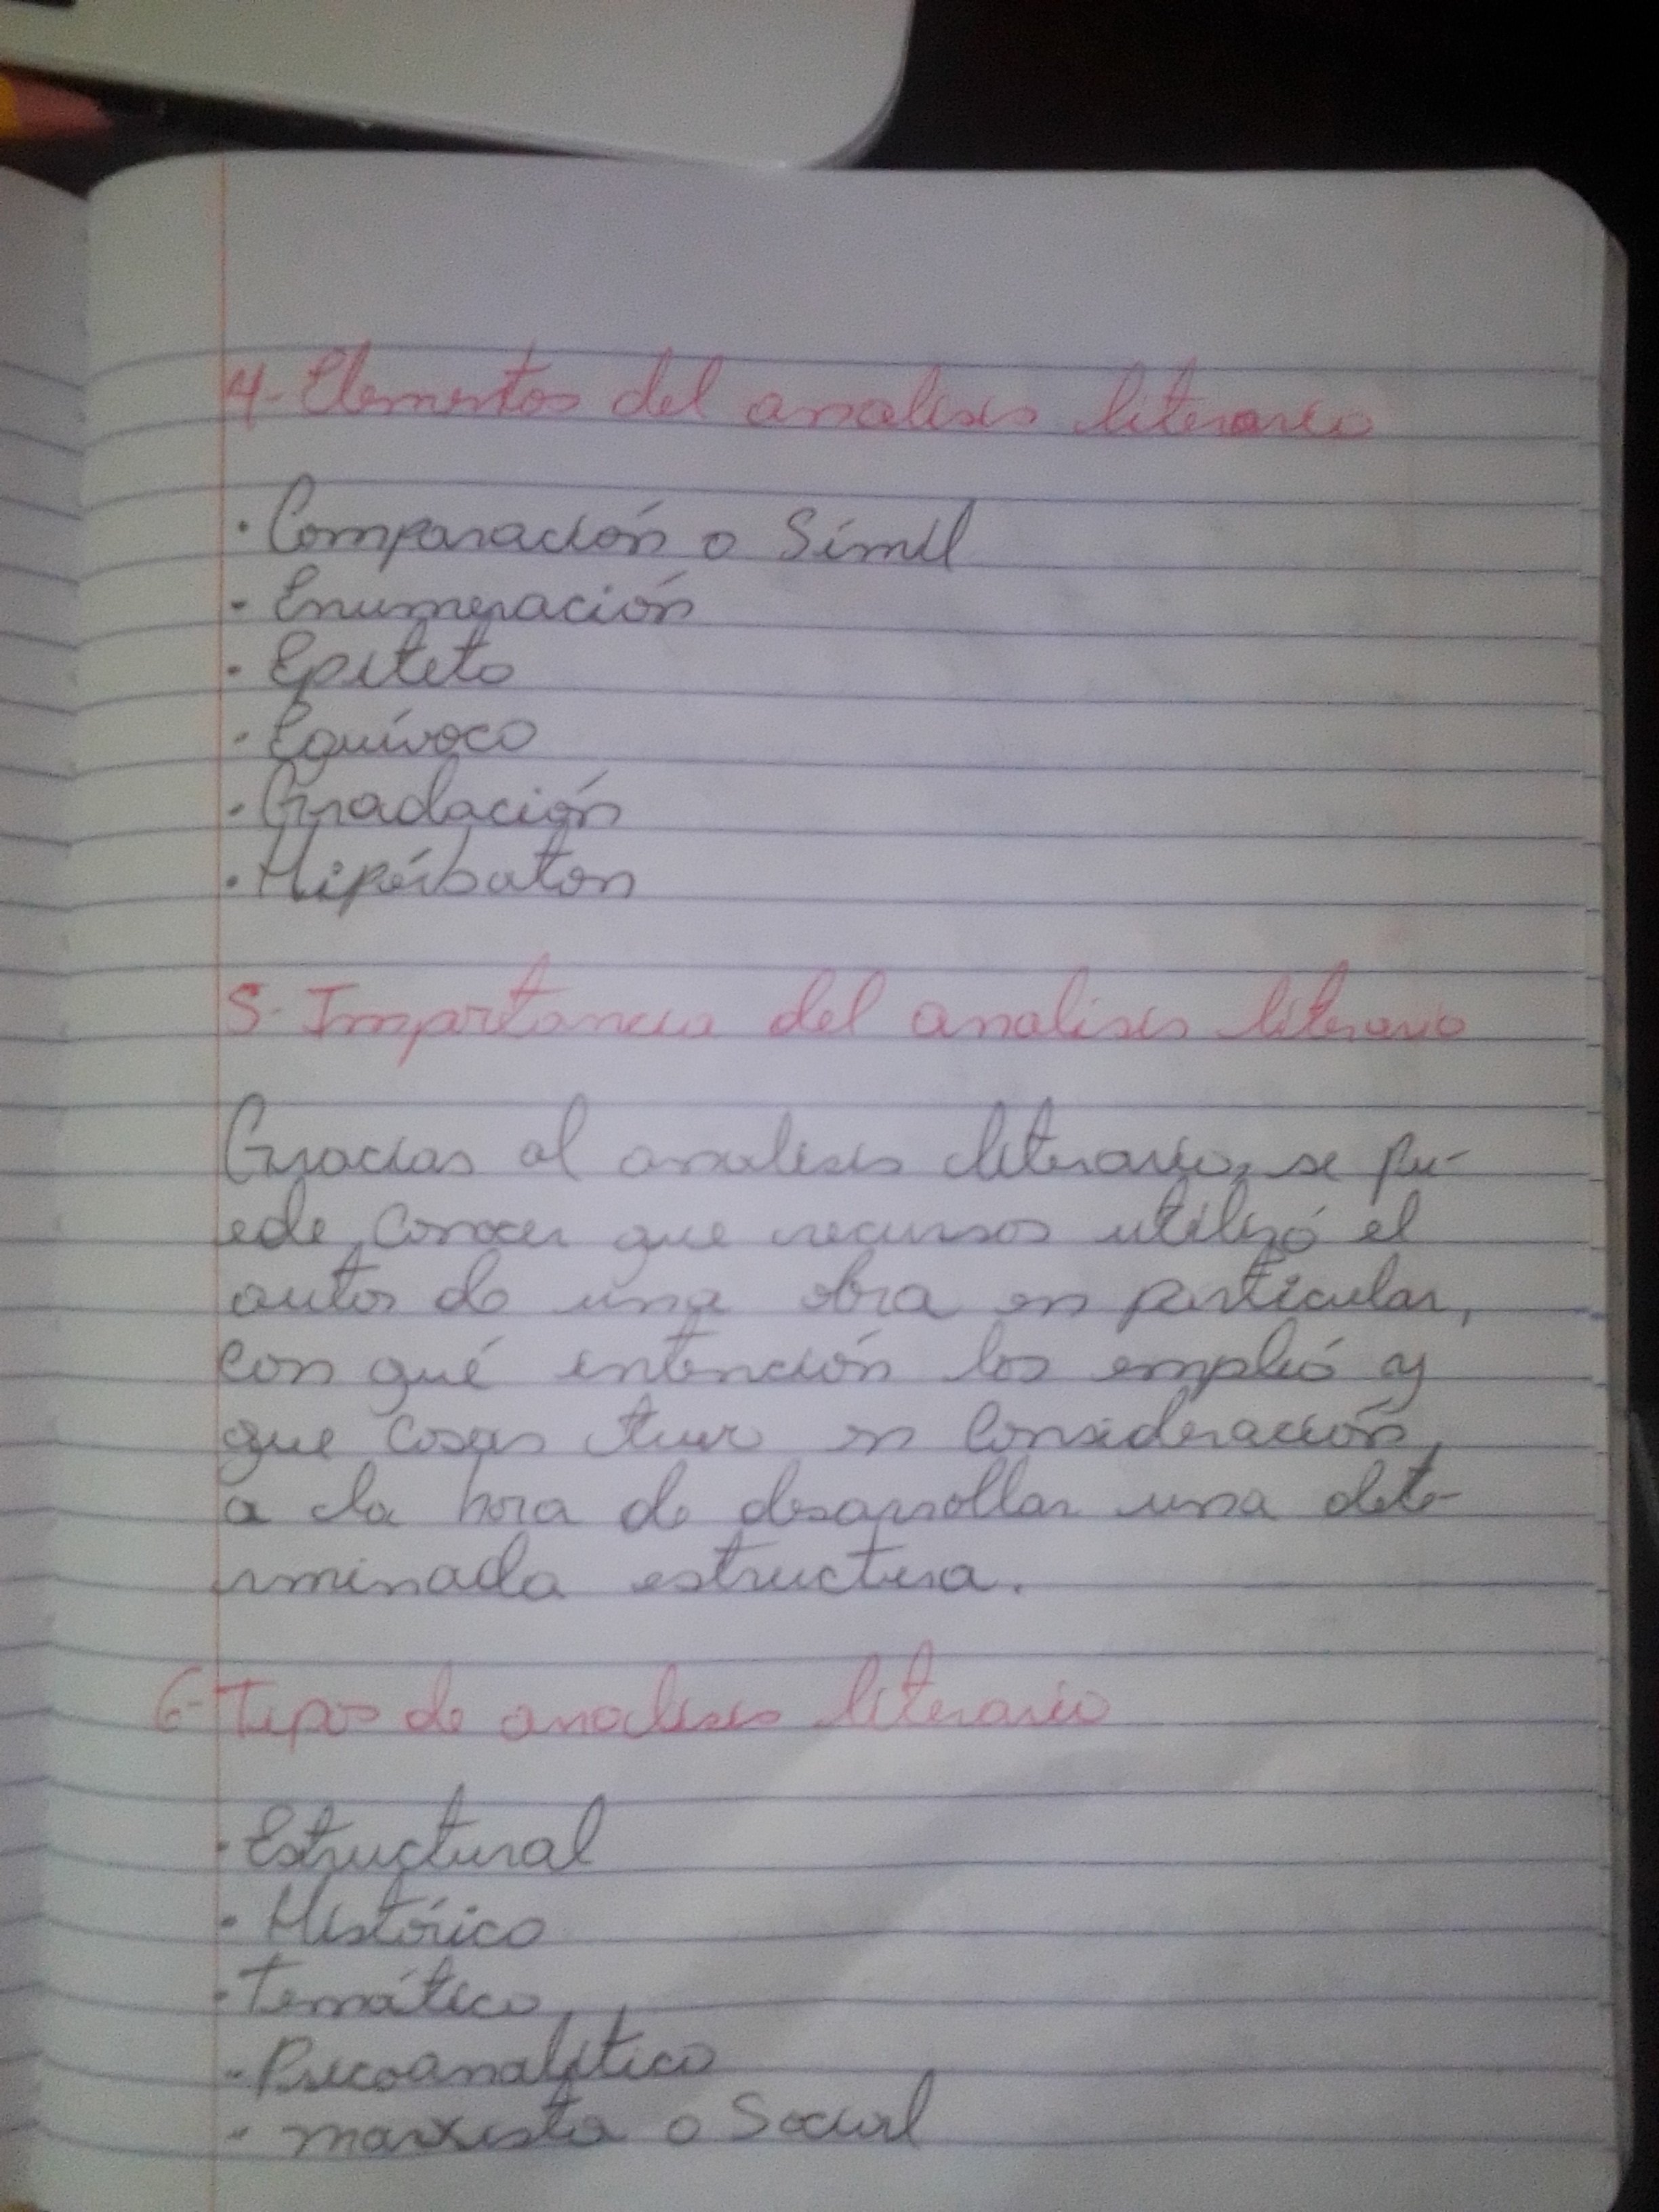 4- Elementos del analisis literario
· Comparación o Símil
- Enumeración
· Epíteto
· Equívoco
· Gradación
· Hipérbaton
5- Importancia del analisis literario
Gracias al analisis literario, se pu-
ede conocer que recursos utilizó el
autor de una obra en particular,
con qué intención los empleó y
que cosas tuvo en consideración
a la hora de desarrollar una dete-
rminada estructura.
6- Tipos de analisis literario
· Estructural
· Histórico
· Temático
- Psicoanalítico
- marxista o Social